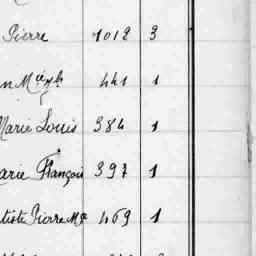 Pierre 1012 3
441 1
Marie Louis 384 1
arie François 397 1
tiste Pierre Me 469 1